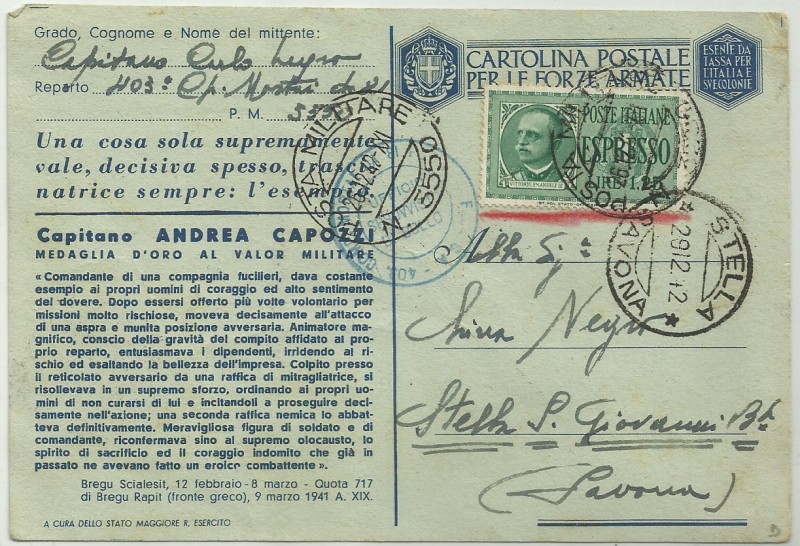 Grado, Cognome e Nome del mittente:
Capitano Carlo Negro
Reparto 403ª Cp. Mortai da 81
P. M. 5550
Una cosa sola supremamente
vale, decisiva spesso, trasci-
natrice sempre: l'esempio
Capitano ANDREA CAPOZZI
MEDAGLIA D'ORO AL VALOR MILITARE
«Comandante di una compagnia fucilieri, dava costante
esempio ai propri uomini di coraggio ed alto sentimento
del dovere. Dopo essersi offerto più volte volontario per
missioni molto rischiose, moveva decisamente all'attacco
di una aspra e munita posizione avversaria. Animatore ma-
gnifico, conscio della gravità del compito affidato al pro-
prio reparto, entusiasmava i dipendenti, irridendo al ri-
schio ed esaltando la bellezza dell'impresa. Colpito presso
il reticolato avversario da una raffica di mitragliatrice, si
risollevava in un supremo sforzo, ordinando ai propri uo-
mini di non curarsi di lui e incitandoli a proseguire deci-
samente nell'azione; una seconda raffica nemica lo abbat-
teva definitivamente. Meravigliosa figura di soldato e di
comandante, riconfermava sino al supremo olocausto, lo
spirito di sacrificio ed il coraggio indomito che già in
passato ne avevano fatto un eroico combattente».
Bregu Scialesit, 12 febbraio - 8 marzo - Quota 717
di Bregu Rapit (fronte greco), 9 marzo 1941 A. XIX.
A CURA DELLO STATO MAGGIORE R. ESERCITO
CARTOLINA POSTALE
PER LE FORZE ARMATE
ESENTE DA
TASSA PER
L'ITALIA E
SVE COLONIE
POSTE ITALIANE
ESPRESSO
LIRE 1,25
VITTORIO EMANUELE III
POSTA MILITARE
26.12.42
N. 5550
STELLA
29 12 42
SAVONA
Alla Sig.ª
Negro
Stella S. Giovanni
(Savona)